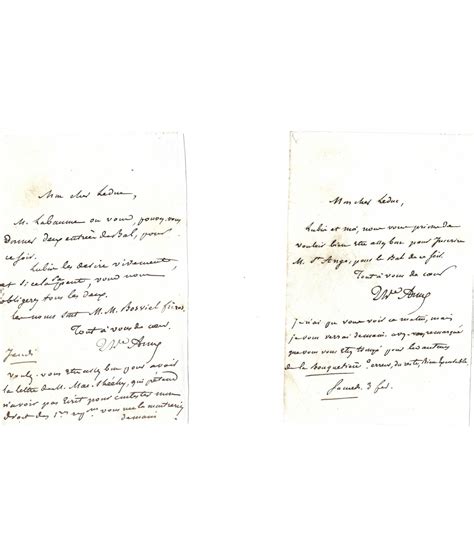 Mon cher Leduc,
M. Labaume ou vous, pouvez-vous
donner deux entrées de Bal, pour
ce soir.
Lubin les désire vivement
et si cela peut, vous nous
obligerez tous les deux.
Les noms sont M.M. frères
Tout à vous de cœur.
Jeudi
voulez-vous être assez bon pour avoir
la lettre de M. Mac-Sheehy, qui prétend
n'avoir pas écrit pour contester mon
droit des 1ers vous me la montrerez
demain
Mon cher Leduc,
Lubin et moi, nous vous prions de
vouloir bien être assez bon pour inscrire
M. St Ange, pour le Bal de ce soir.
Tout à vous de cœur
je n'ai que vous voir ce matin, mais
je vous verrai demain. avez-vous remarqué
que vous vous êtes trompé pour les auteurs
de la Bouquetière? erreur, du reste, bien
Samedi 3 fév.